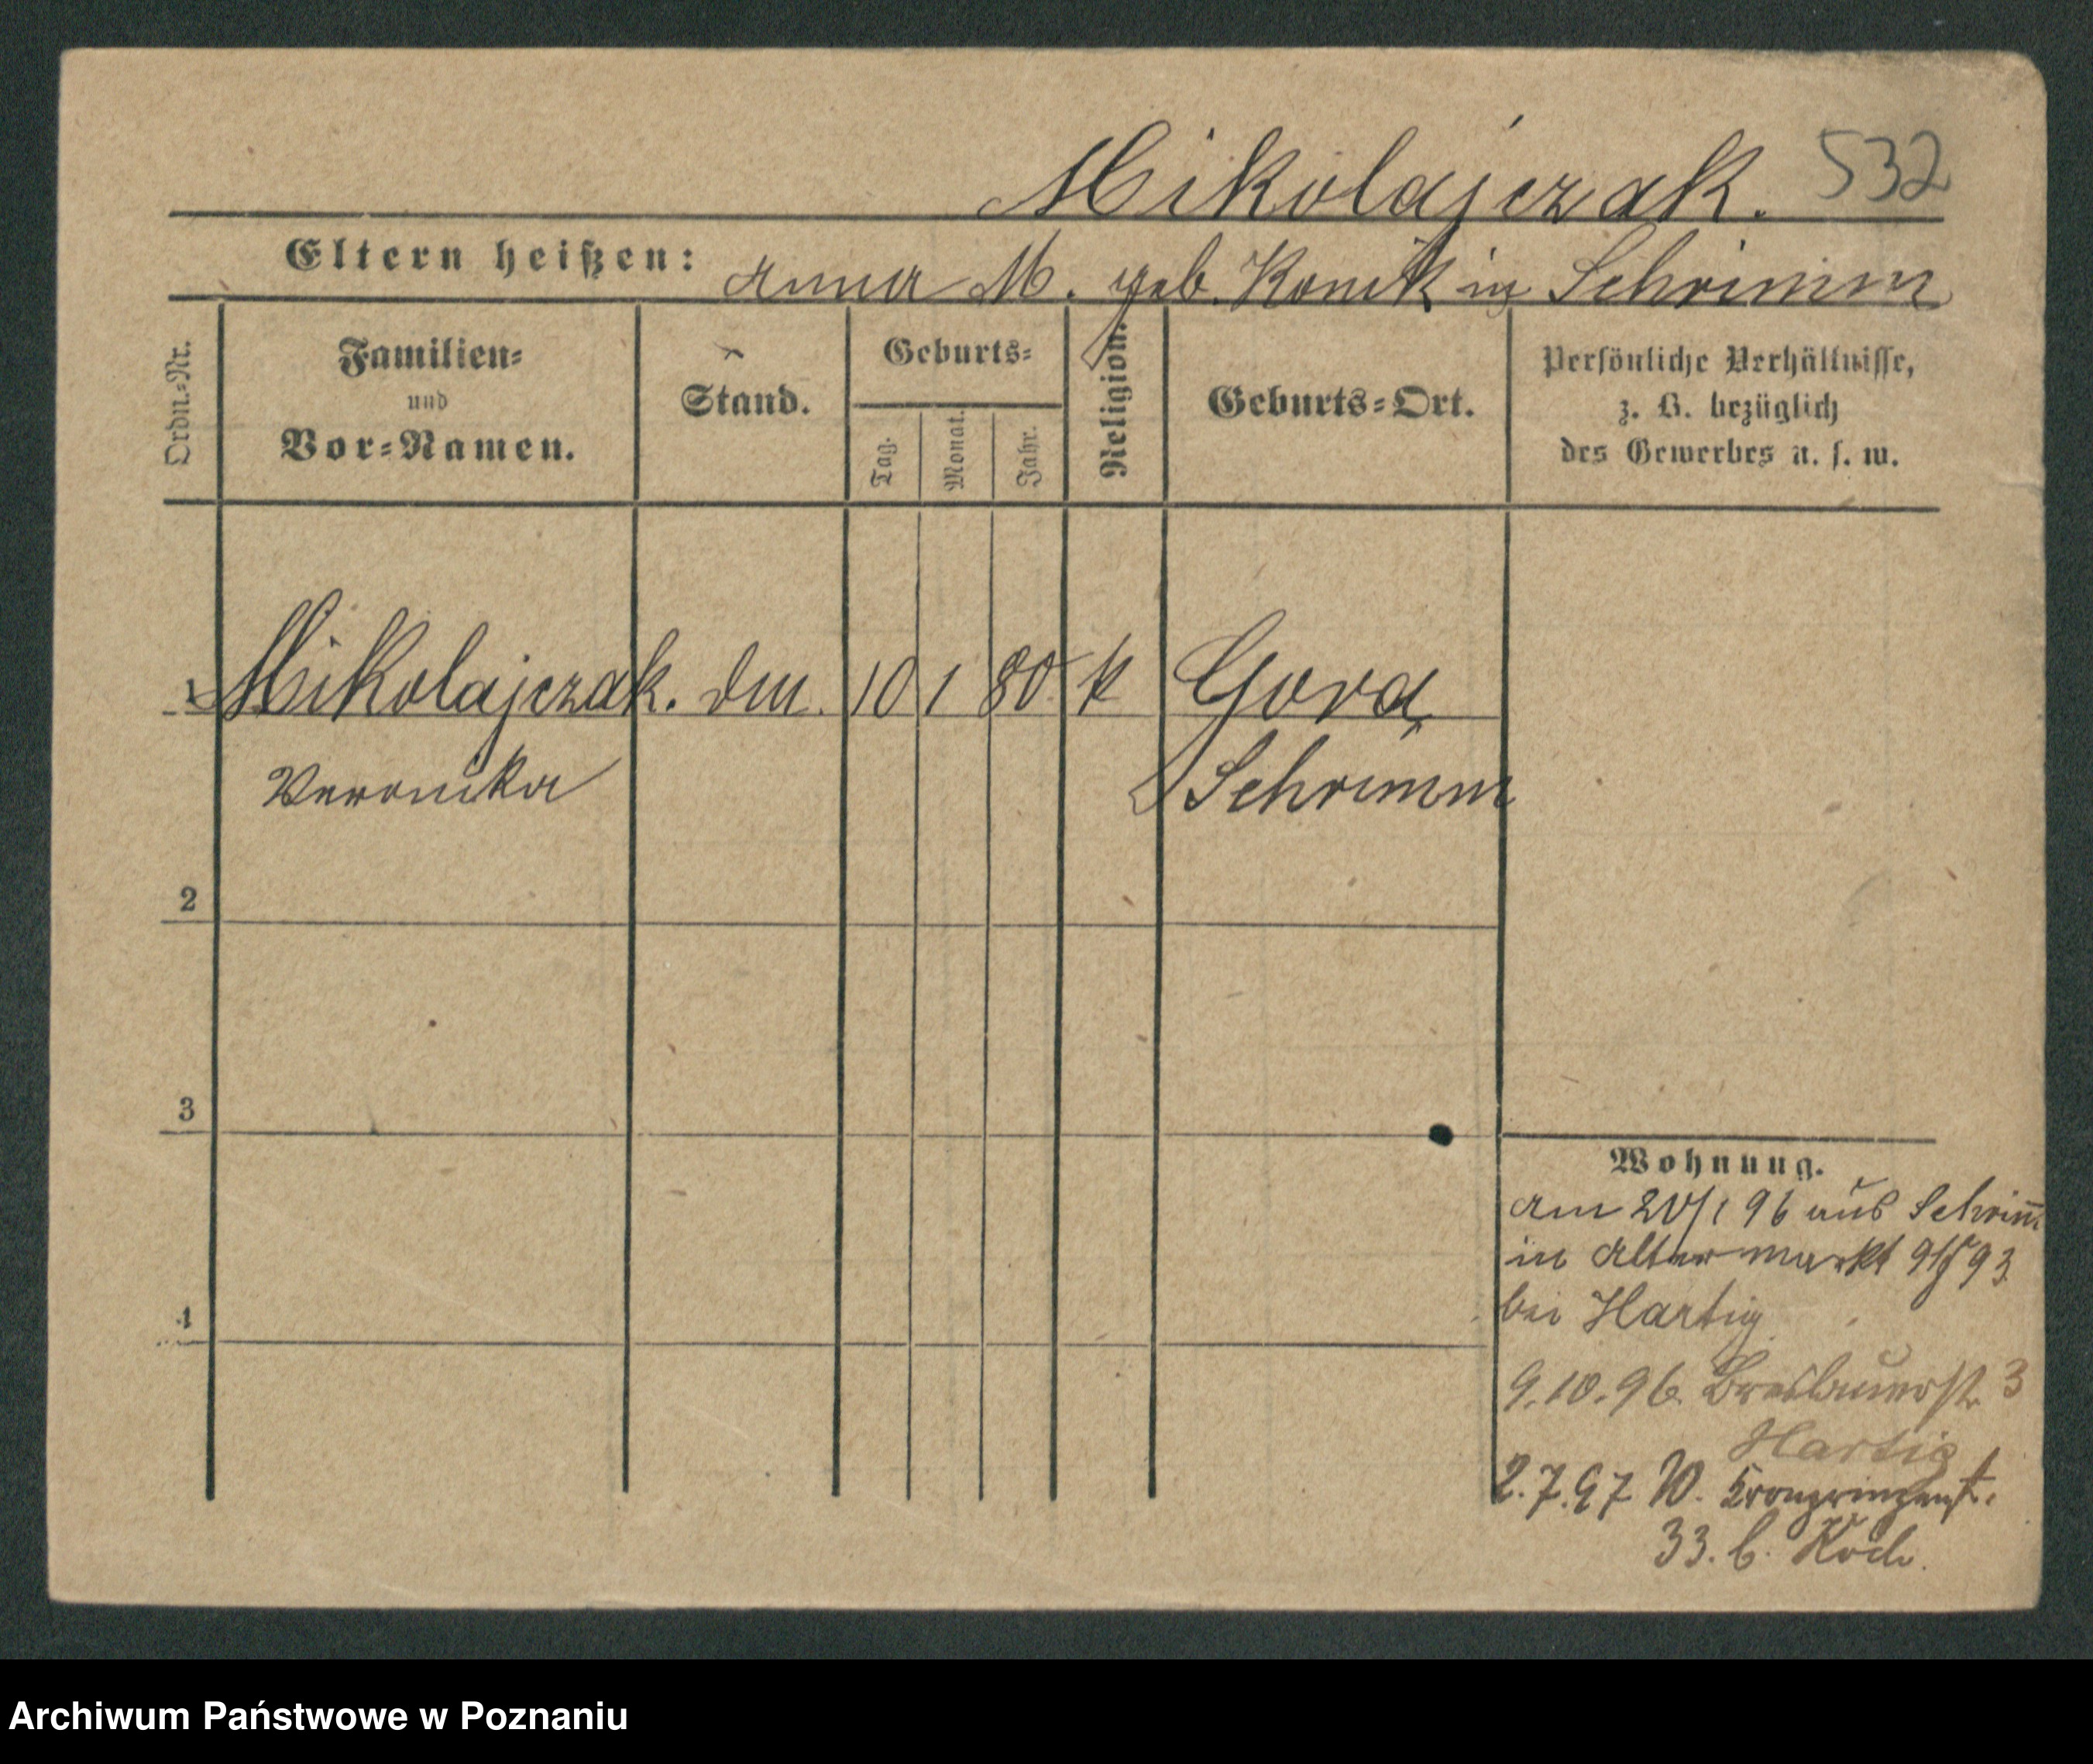 Mikolajczak. 532
Eltern heißen: Anna M. geb. Konik in Schrimm
Ordn.-Nr.
Familien-
und
Vor-Namen.
Stand.
Geburts-
Tag.
Monat.
Jahr.
Religion.
Geburts-Ort.
Persönliche Verhältnisse,
z. B. bezüglich
des Gewerbes u. s. w.
1 Mikolajczak. 10 1 80 k Gora
Veronika Schrimm
2
3
4
Wohnung.
am 20/1 96 aus Schrim̄
in Alter markt 93
bei Hartig
9.10.96. Breslauerst. 3
Hartig
2.7.97 W. Kronprinzenst.
33. b. Koch.